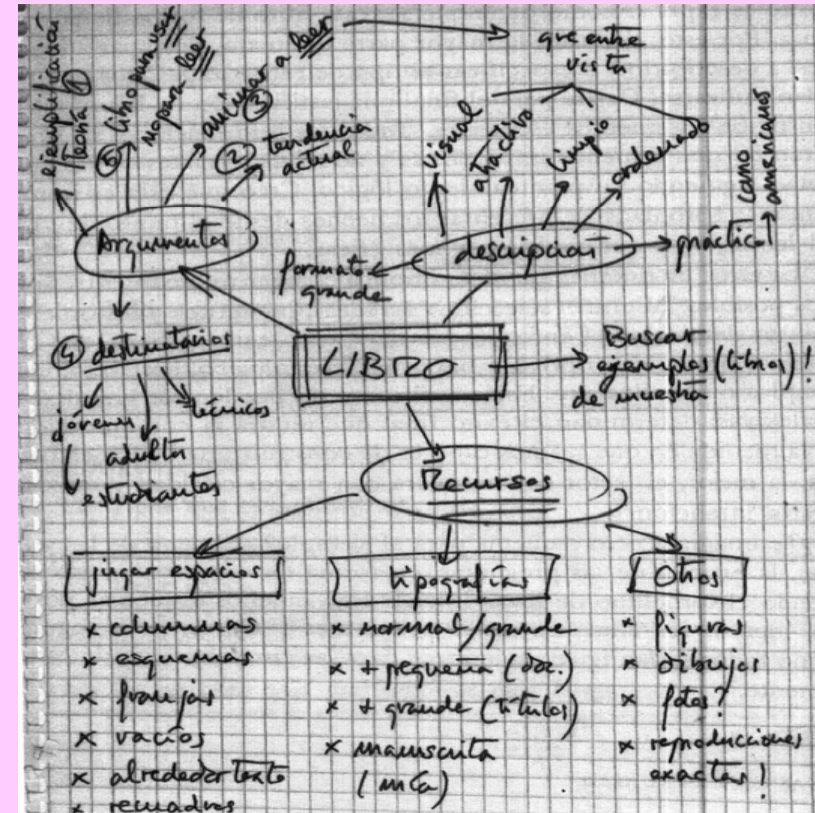 ejemplificación
teoría ①
⑤ libro para usar
no para leer
animar a leer
③
② tendencia
actual
que entre
vista
visual
atractivo
limpio
ordenado
como
americanos
Argumentos
descripción
práctico
formato
grande
④ destinatarios
jóvenes
adultos
técnicos
estudiantes
LIBRO
Buscar
ejemplos (libros)!
de muestra
Recursos
jugar espacios
x columnas
x esquemas
x franjas
x vacíos
x alrededor texto
x recuadros
tipografías
x normal/grande
x + pequeña (doc.)
x + grande (títulos)
x manuscrita
(mía)
Otros
x figuras
x dibujos
x fotos?
x reproducciones
exactas!